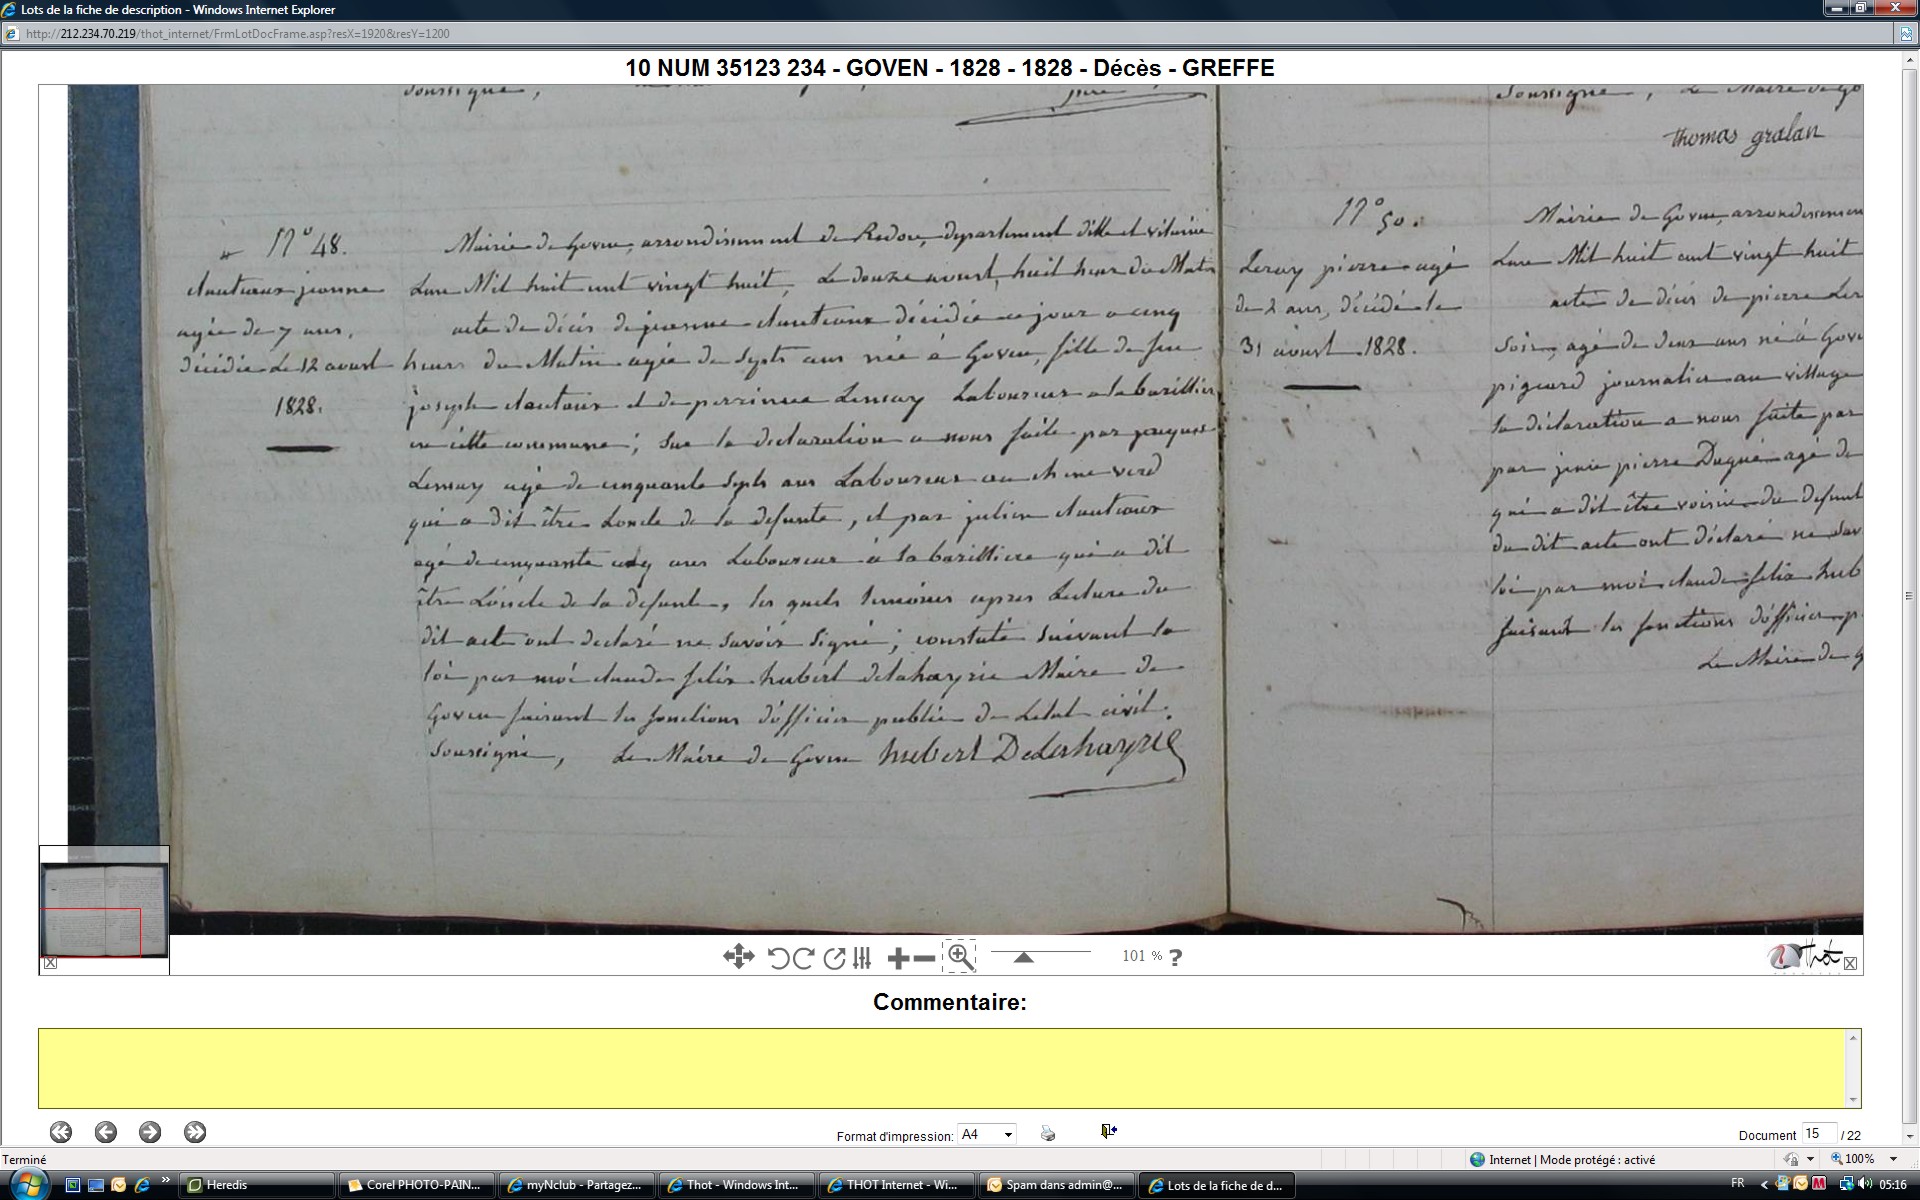 Lots de la fiche de description - Windows Internet Explorer
http://212.234.70.219/thot_internet/FrmLotDocFrame.asp?resX=1920&resY=1200
10 NUM 35123 234 - GOVEN - 1828 - 1828 - Décès - GREFFE
Soussigné,
N° 48.
dautiaux jeanne
agée de 7 ans,
décédée Le 12 aoust
1828.
Mairie de Goven, arrondissement de Redon, departement d'ille et vilaine
Lan Mil huit cent vingt huit, Le douze aoust, huit heur du Matin
acte de décés de jeanne dautiaux décédée ce jour a cinq
heurs du Matin agée de septs ans née à Goven, fille de feu
joseph dautiaux et de perrinne Lemay Laboureur a la barilliere
en cette commune ; sur la declaration a nous faite par jacques
Lemay agé de cinquante septs ans Laboureur au chene verd
qui a dit être Loncle de la defunte, et par julien dautiaux
agé de cinquante cinq ans Laboureur à la barilliere qui a dit
être Loncle de la defunte, les quels temoins apres Lecture du
dit acte ont declaré ne savoir signé ; constaté suivant la
loi par moi claude felix hubert delahayrie Maire de
Goven faisant les fonctions d'officier public de Letat civil.
Soussigné, Le Maire de Goven hubert Delahayrie
Soussigné, Le Maire de Go
thomas gralan
N° 50.
Leray pierre agé
de 2 ans, décédé le
31 aoust 1828.
Mairie de Goven, arrondissemen
Lan Mil huit cent vingt huit
acte de décés de pierre Ler
Soir, agé de deux ans né à Gove
pigeard journalier au village
la déclaration a nous faite par
par jean pierre Dugué agé de
qui a dit être voisin du defunt
du dit acte ont déclaré ne sav
loi par moi claude felix hub
faisant les fonctions d'officier p
Le Maire de g
101 % ?
Thot
Commentaire:
Format d'impression: A4
Document 15 / 22
Terminé
Internet | Mode protégé : activé
100%
Heredis
Corel PHOTO-PAIN...
myNclub - Partagez...
Thot - Windows Int...
THOT Internet - Wi...
Spam dans admin@...
Lots de la fiche de d...
FR
05:16